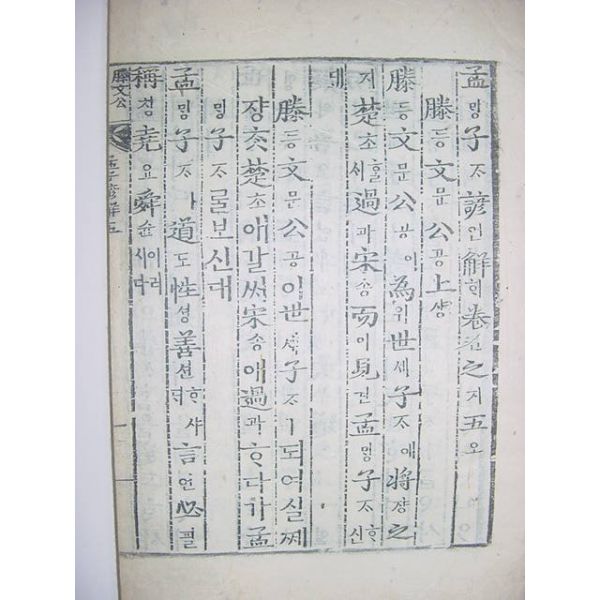 孟ᄆᆡᆼ子ᄌᆞ諺언解ᄒᆡ卷권之지五오
滕등文문公공上샹
滕등文문公공이爲위世셰子ᄌᆞ애將쟝之
지楚초ᄒᆞᆯᄉᆡ過과宋송而이見견孟ᄆᆡᆼ子ᄌᆞᄒᆞ신
대
滕등文문公공이世셰子ᄌᆞㅣ되여실ᄶᅢ
쟝ᄎᆞᆺ楚초애갈ᄉᆡ宋송애過과ᄒᆞ다가孟
ᄆᆡᆼ子ᄌᆞᄅᆞᆯ보신대
孟ᄆᆡᆼ子ᄌᆞㅣ道도性셩善션ᄒᆞ샤ᄃᆡ言언必필
稱칭堯요舜슌이러시다
滕文公
孟子諺解五